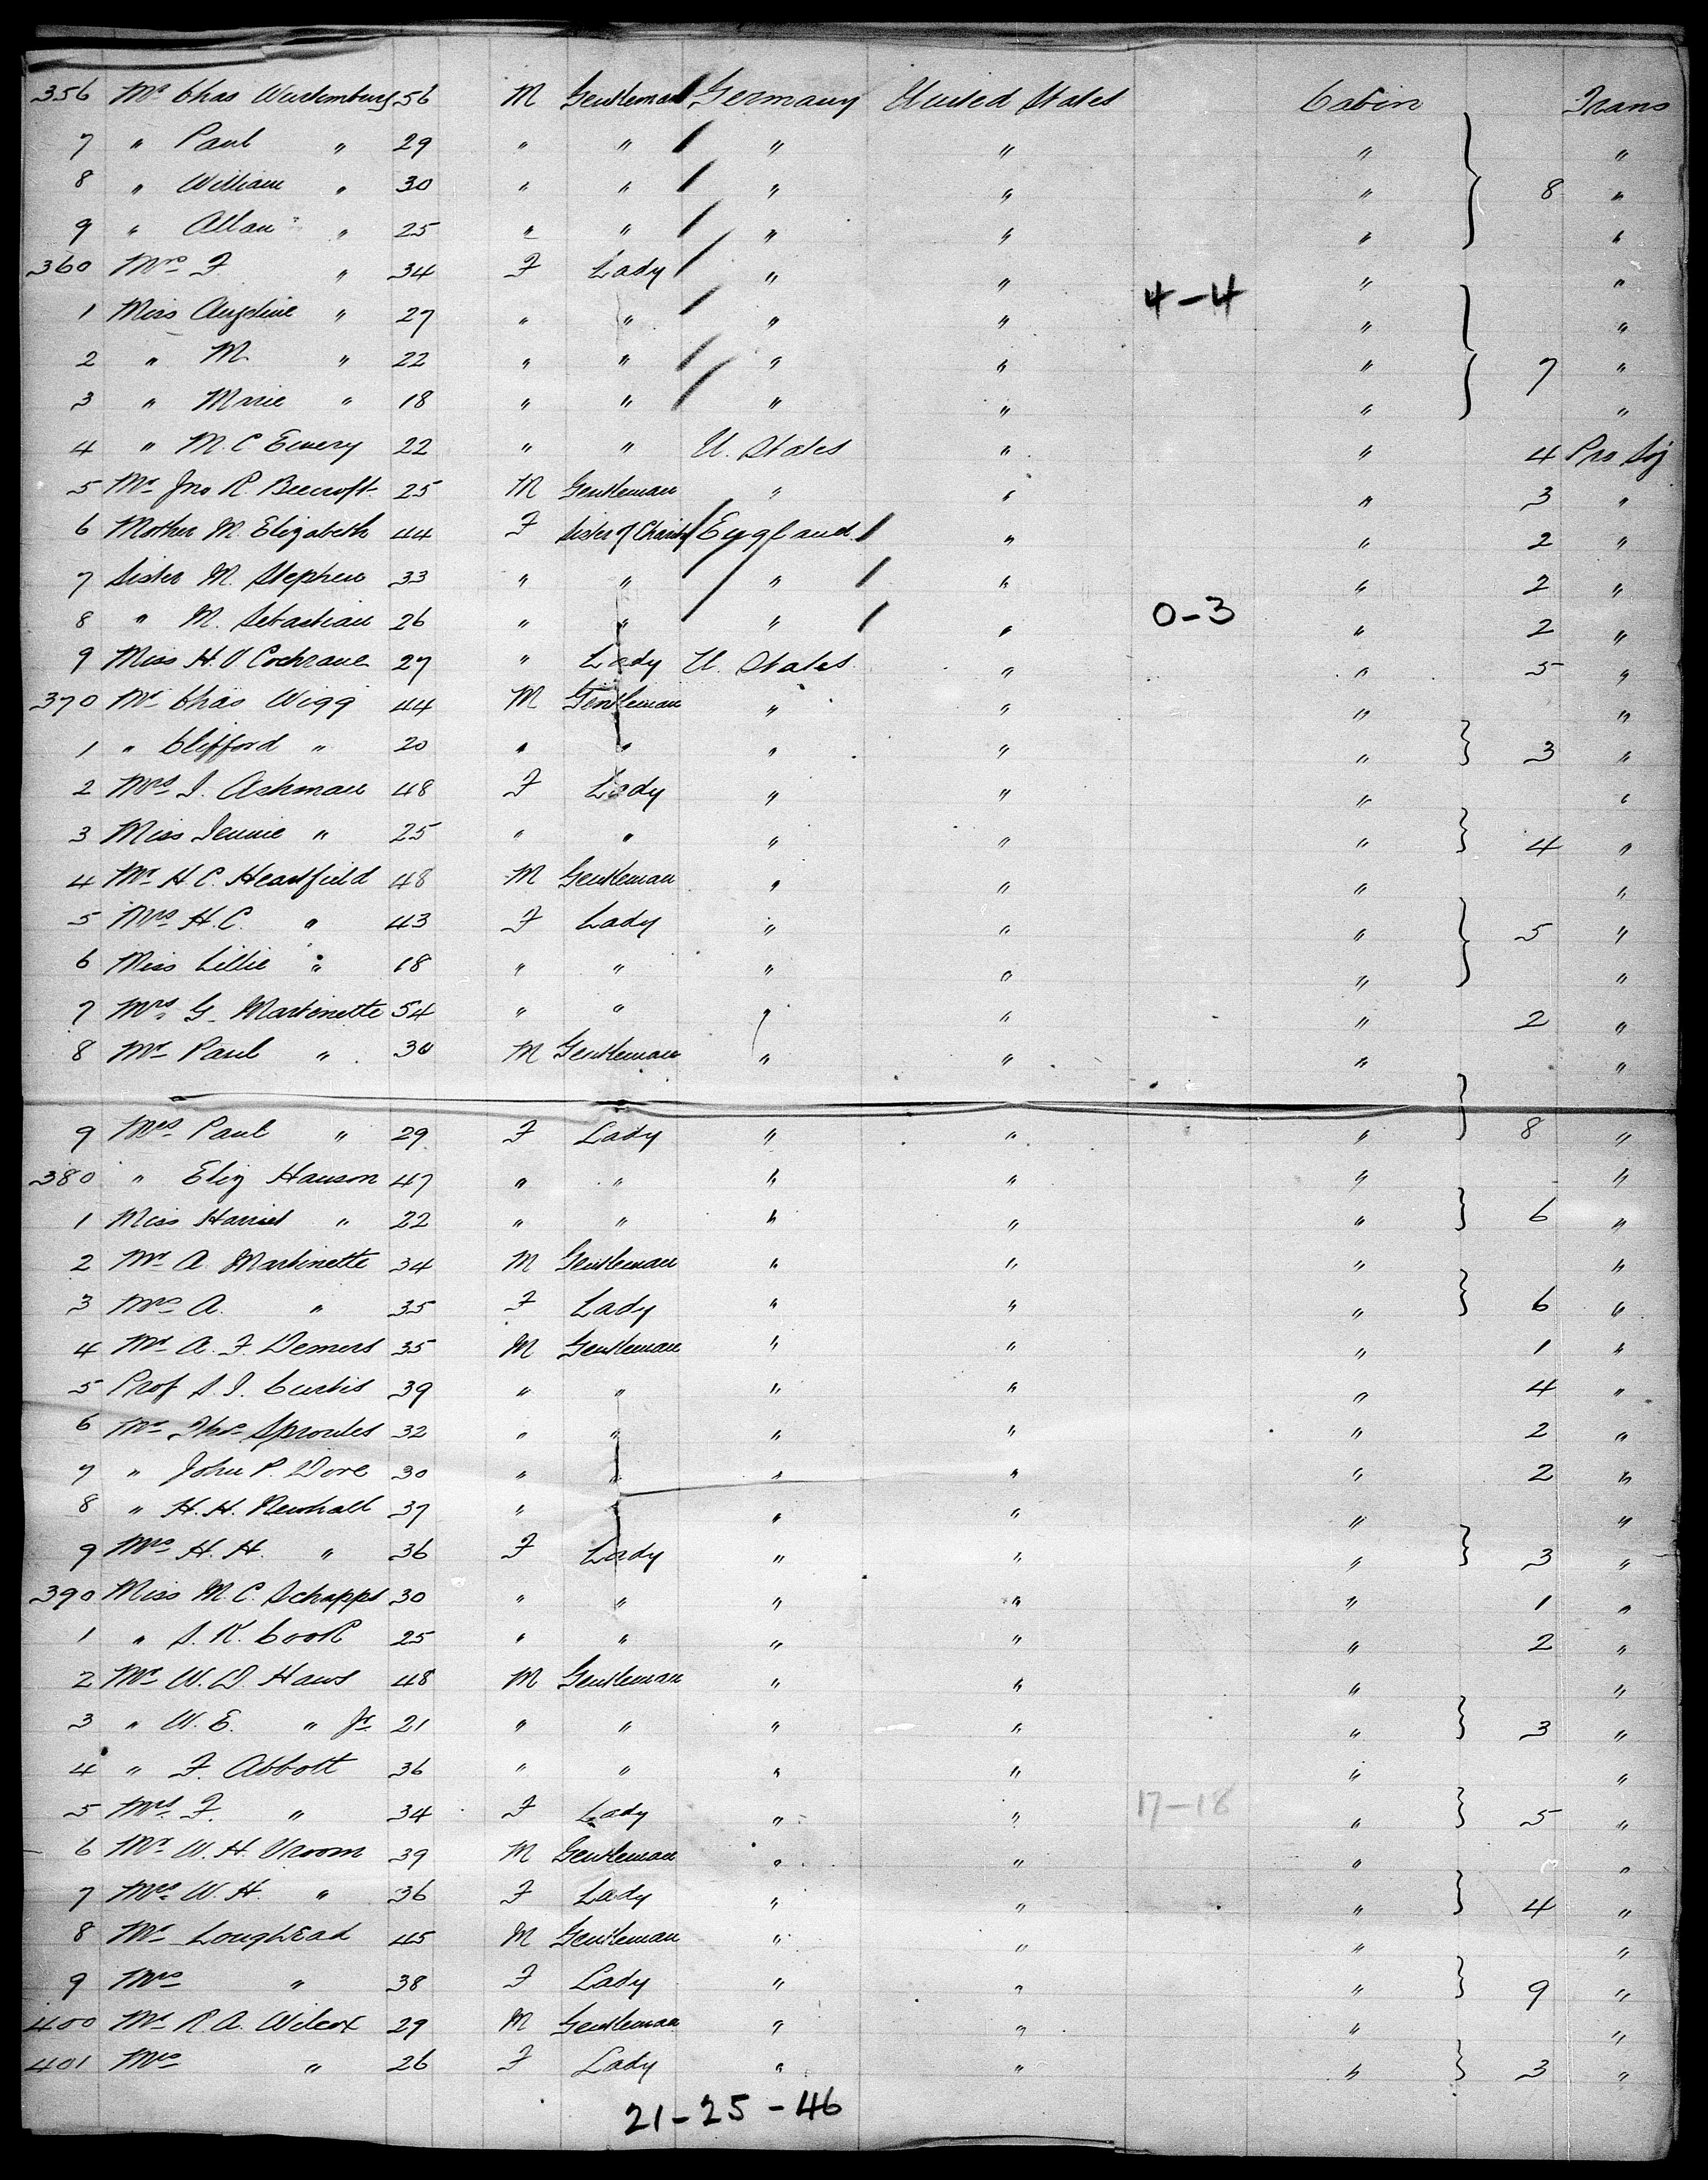 356 Mr Chas Wurtemburg 56 M Gentleman Germany United States Cabin Trans
7 " Paul " 29 " " " " " "
8 " William " 30 " " " " " 8 "
9 " Allan " 25 " " " " " "
360 Mrs F. " 34 F Lady " " " "
4-4
1 Miss Angeline " 27 " " " " " "
2 " M. " 22 " " " " " 7 "
3 " Marie " 18 " " " " " "
4 " M. C Emery 22 " " U. States " " 4 Pro Soj
5 Mr Jno R. Beecroft 25 M Gentleman " " " 3 "
6 Mother M. Elizabeth 44 F Sister of Charity England " " 2 "
7 Sister M. Stephen 33 " " " " " 2 "
8 " M. Sebastian 26 " " " " 0-3 " 2 "
9 Miss H. V Cochrane 27 " Lady U. States " " 5 "
370 Mr Chas Wigg 44 M Gentleman " " " "
1 " Clifford " 20 " " " " " 3 "
2 Mrs I. Ashman 48 F Lady " " " "
3 Miss Jennie " 25 " " " " " 4 "
4 Mr H. C. Heartfield 48 M Gentleman " " " "
5 Mrs H. C. " 43 F Lady " " " 5 "
6 Miss Lillie " 18 " " " " " "
7 Mrs G. Martinette 54 " " " " " 2 "
8 Mr Paul " 30 M Gentleman " " " "
9 Mrs Paul " 29 F Lady " " " 8 "
380 " Eliz Hanson 47 " " " " " "
1 Miss Harriet " 22 " " " " " 6 "
2 Mr A. Martinette 34 M Gentleman " " " "
3 Mrs A. " 35 F Lady " " " 6 "
4 Mr A. F. Demers 35 M Gentleman " " " 1 "
5 Prof S. I. Curtis 39 " " " " " 4 "
6 Mr Thos Sproules 32 " " " " " 2 "
7 " John P. Dore 30 " " " " " 2 "
8 " H. H. Newhall 37 " " " " "
9 Mrs H. H. " 36 F Lady " " " 3 "
390 Miss M. C. Schapps 30 " " " " " 1 "
1 " S. K. Cook 25 " " " " " 2 "
2 Mr W. D. Haws 48 M Gentleman " " " "
3 " W. E. " Jr. 21 " " " " " 3 "
4 " F. Abbott 36 " " " " " "
5 Mrs F. " 34 F Lady " " 17-18 " 5 "
6 Mr W. H. Vroom 39 M Gentleman " " " "
7 Mrs W. H. " 36 F Lady " " " 4 "
8 Mr Loughead 45 M Gentleman " " " "
9 Mrs " 38 F Lady " " " 9 "
400 Mr R. A. Wilcox 29 M Gentleman " " " "
401 Mrs " 26 F Lady " " " 3 "
21-25-46